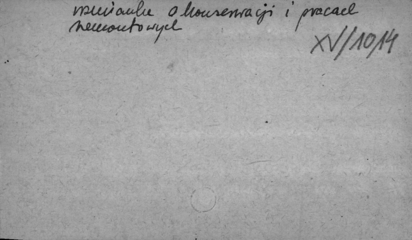 wzmianka o konserwacji i pracach
remontowych
XV/10/14